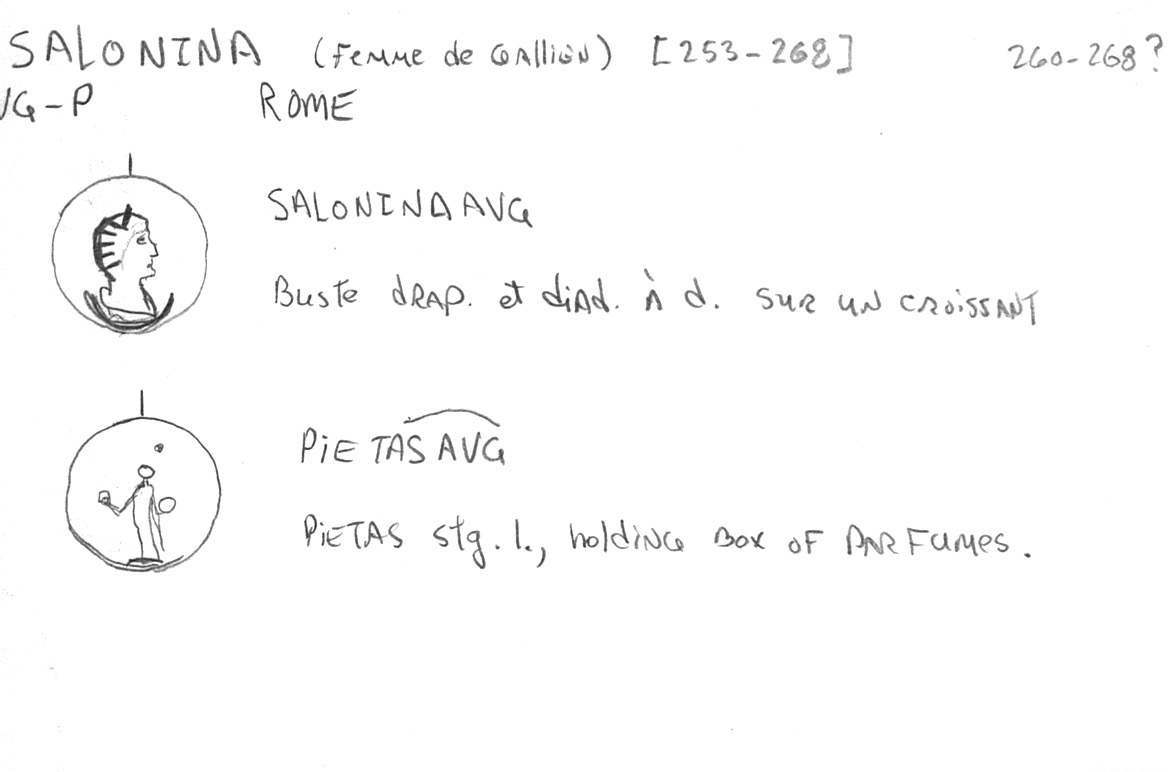 SALONINA (femme de Gallien) [253-268] 260-268?
VG-P ROME
SALONINA AVG
Buste drap. et diad. à d. sur un croissant
PIETAS AVG
PIETAS stg. l., holding box of parfumes.